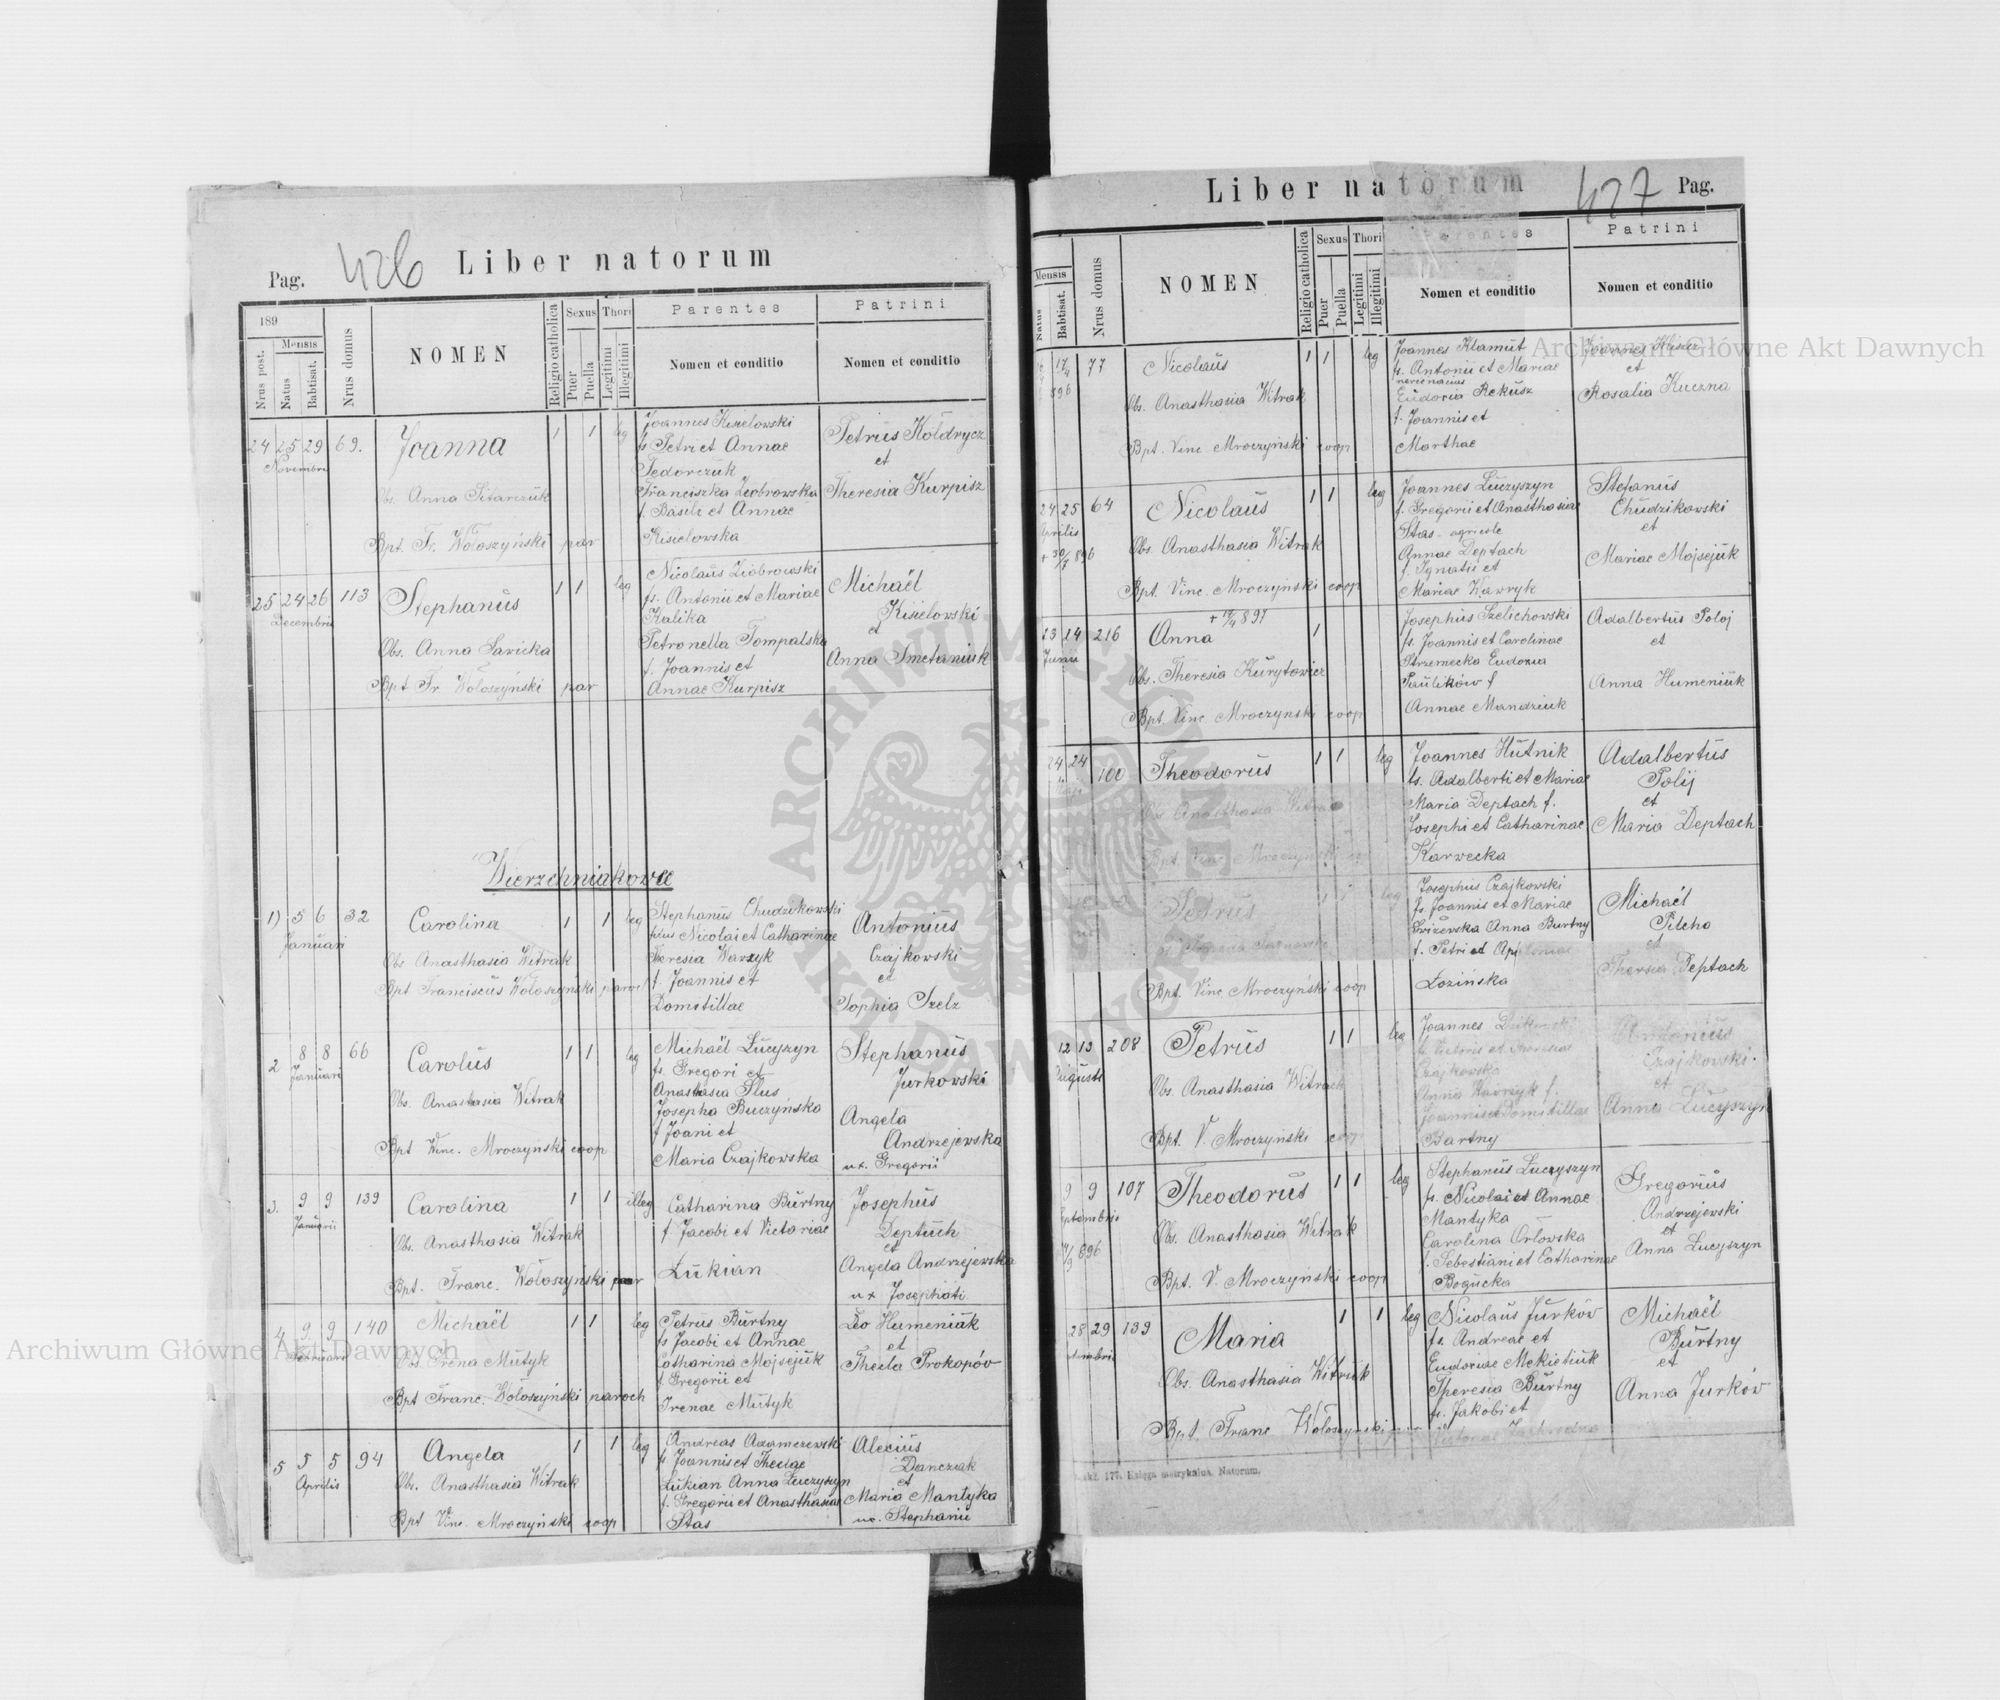 Pag. 426 Liber natorum
189
Nrus post.
Mensis
Natus
Babtisat.
Nrus domus
NOMEN
Religio catholica
Sexus
Puer
Puella
Thori
Legitimi
Illegitimi
Parentes
Nomen et conditio
Patrini
Nomen et conditio
24 25 29 69.
Novembris
Joanna
1 1 leg
Obs. Anna Sitarczuk
Bpt. Fr. Wołoszyński par
Joannes Kisielowski
fs Petri et Annae
Fedorczuk
Franciszka Ziobrowska
f. Basili et Annae
Kisielowska
Petrus Kołdrycz
et
Theresia Kurpisz
25 24 26 113
Decembris
Stephanus
1 1 leg
Obs. Anna Savicka
Bpt Fr. Wołoszyński par
Nicolaus Ziobrowski
fs. Antonii et Mariae
Kalika
Petronella Tompalska
f. Joannis et
Annae Kurpisz
Michaël
Kisielowski
et
Anna Smetaniuk
Wierzchniakowce
1) 5 6 32
Januari
Carolina
1 1 leg
Obs. Anasthasia Witrak
Bpt Franciscus Wołoszyński paroch
Stephanus Chudzikowski
filius Nicolai et Catharinae
Theresia Wawryk
f. Joannis et
Domitillae
Antonius
Czajkowski
et
Sophia Szelz
2 8 8 66
Januari
Carolus
1 1 leg
Obs. Anastasia Witrak
Bpt Vinc. Mroczyński coop
Michaël Łucyszyn
fs. Gregori et
Anastasia Slus
Josepha Buczyńska
f Joani et
Maria Czajkowska
Stephanus
Jurkowski
Angela
Andrzejewska
ux. Gregorii
3. 9 9 139
Januarii
Carolina
1 1 illeg
Obs. Anasthasia Witrak
Bpt. Franc. Wołoszyński par
Catharina Burtny
f Jacobi et Victoriae
Łukian
Josephus
Deptuch
et
Angela Andrzejewska
ux Josephati
4 9 9 140
Februari
Michaël
1 1 leg
Obs. Irena Mutyk
Bpt Franc. Wołoszyński paroch
Petrus Burtny
fs Jacobi et Annae
Catharina Mojsejuk
f. Gregorii et
Irenae Mutyk
Leo Humeniuk
et
Thecla Prokopów
5 5 5 94
Aprilis
Angela
1 1 leg
Obs. Anasthasia Witrak
Bpt Vinc. Mroczyński coop
Andreas Adamczewski
fs. Joannis et Theclae
Łukian Anna Łuczyszyn
f. Gregorii et Anasthasiae
Stas
Alecius
Danczak
et
Maria Mantyka
ux. Stephanii
Liber natorum 427 Pag.
Mensis
Natus
Babtisat.
Nrus domus
NOMEN
Religio catholica
Sexus
Puer
Puella
Thori
Legitimi
Illegitimi
Parentes
Nomen et conditio
Patrini
Nomen et conditio
17/4 77
896
Nicolaus
1 1 leg
Obs. Anasthasia Witrak
Bpt. Vinc Mroczyński coop
Joannes Klamut
fs. Antonii et Mariae
Eudoxia Rekusz
f. Joannis et
Marthae
Joannes
et
Rosalia Kuczna
24 25 64
Aprilis
+ 30/7 896
Nicolaus
1 1 leg
Obs. Anasthasia Witrak
Bpt. Vinc. Mroczyński coop
Joannes Łuczyszyn
f. Gregorii et Anasthasiae
Stas - agricole
Annae Deptach
f. Ignatii et
Mariae Wawryk
Stefanus
Chudzikowski
et
Mariae Mojsejuk
23 24 216
Junii
Anna
1
Obs. Theresia Kurytowicz
Bpt. Vinc. Mroczyński coop
Josephus Szelichowski
fs. Joannis et Carolinae
Strzemecka Eudoxia
Paulików f
Annae Mandziuk
Adalbertus Poloj
et
Anna Humeniuk
24 24 100
Theodorus
1 1 leg
Obs. Anasthasia Witrak
Bpt. Vinc Mroczyński
Joannes Hutnik
fs. Adalberti et Mariae
Maria Deptach f.
Josephi et Catharinae
Karwecka
Adalbertus
Polij
et
Maria Deptach
Petrus
1 1 leg
Bpt. Vinc Mroczyński coop
Josephus Czajkowski
fs. Joannis et Mariae
Anna Burtny
f. Petri et Apoloniae
Łozińska
Michaël
Pilcho
et
Theresia Deptach
12 13 208
Augusti
Petrus
1 1 leg
Obs. Anasthasia Witrach
Bpt. V. Mroczyński coop
Joannes
Czajkowska
Anna Wawryk f.
Joannis et Domitillae
Bartny
Antonius
Czajkowski.
et
Anna Łuczyszyn
9 9 107
Septembris
896
Theodorus
1 1 leg
Obs. Anasthasia Witrak
Bpt. V. Mroczyński coop
Stephanus Łuczyszyn
fs. Nicolai et Annae
Mantyka
Carolina Orłowska
f. Sebestiani et Catharinae
Bogucka
Gregorius
Andrzejewski
et
Anna Łucyszyn
28 29 139
Maria
1 1 leg
Obs. Anasthasia Witruk
Bpt. Franc Wołoszynski par
Nicolaus Jurków
fs. Andreae et
Eudoxiae Mekietiuk
Theresia Burtny
fs. Jakobi et
Michaël
Burtny
et
Anna Jurków
177. Księga metrykalna. Natorum.
Archiwum Główne Akt Dawnych
Archiwum Główne Akt Dawnych
ARCHIWUM GŁÓWNE AKT DAWNYCH